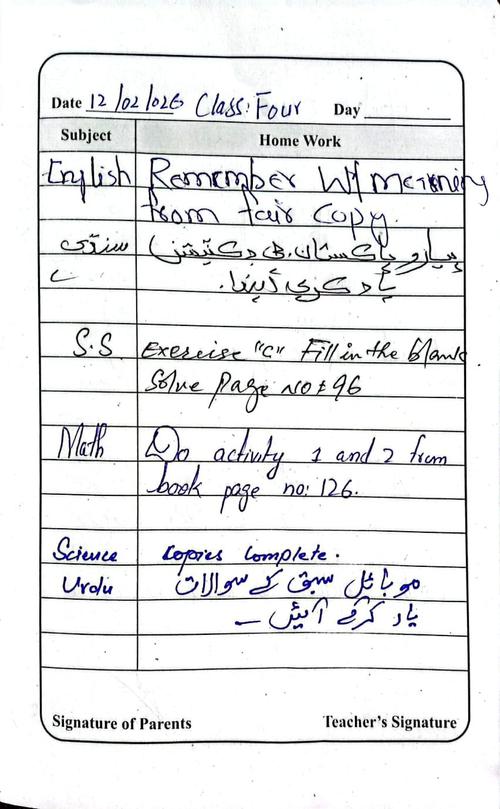 Date 12/02/026 Class: Four Day
Subject Home Work
English Remember W/meaning
from fair copy.
سنڌي پيارو پاڪستان. جي ڊڪٽيشن
ياد ڪري ايندا.
S.S Exercise "C" Fill in the blank
Solve Page no # 96
Math Do activity 1 and 2 from
book page no: 126.
Science Copies Complete.
Urdu موبائل سبق کے سوالات
یاد کرکے آئیں۔
Signature of Parents Teacher's Signature